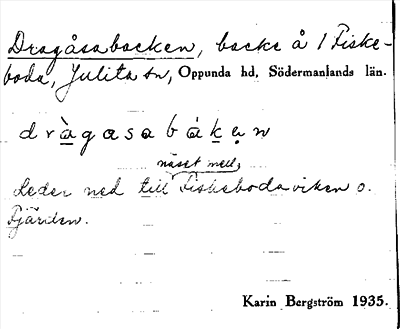 Dragåsabacken, backe å 1 Fiske-
boda, Julita sn, Oppunda hd, Södermanlands län.
dràgasabákẹn
näset mell,
Leder ned till Fiskebodaviken o.
Fjärden.
Karin Bergström 1935.